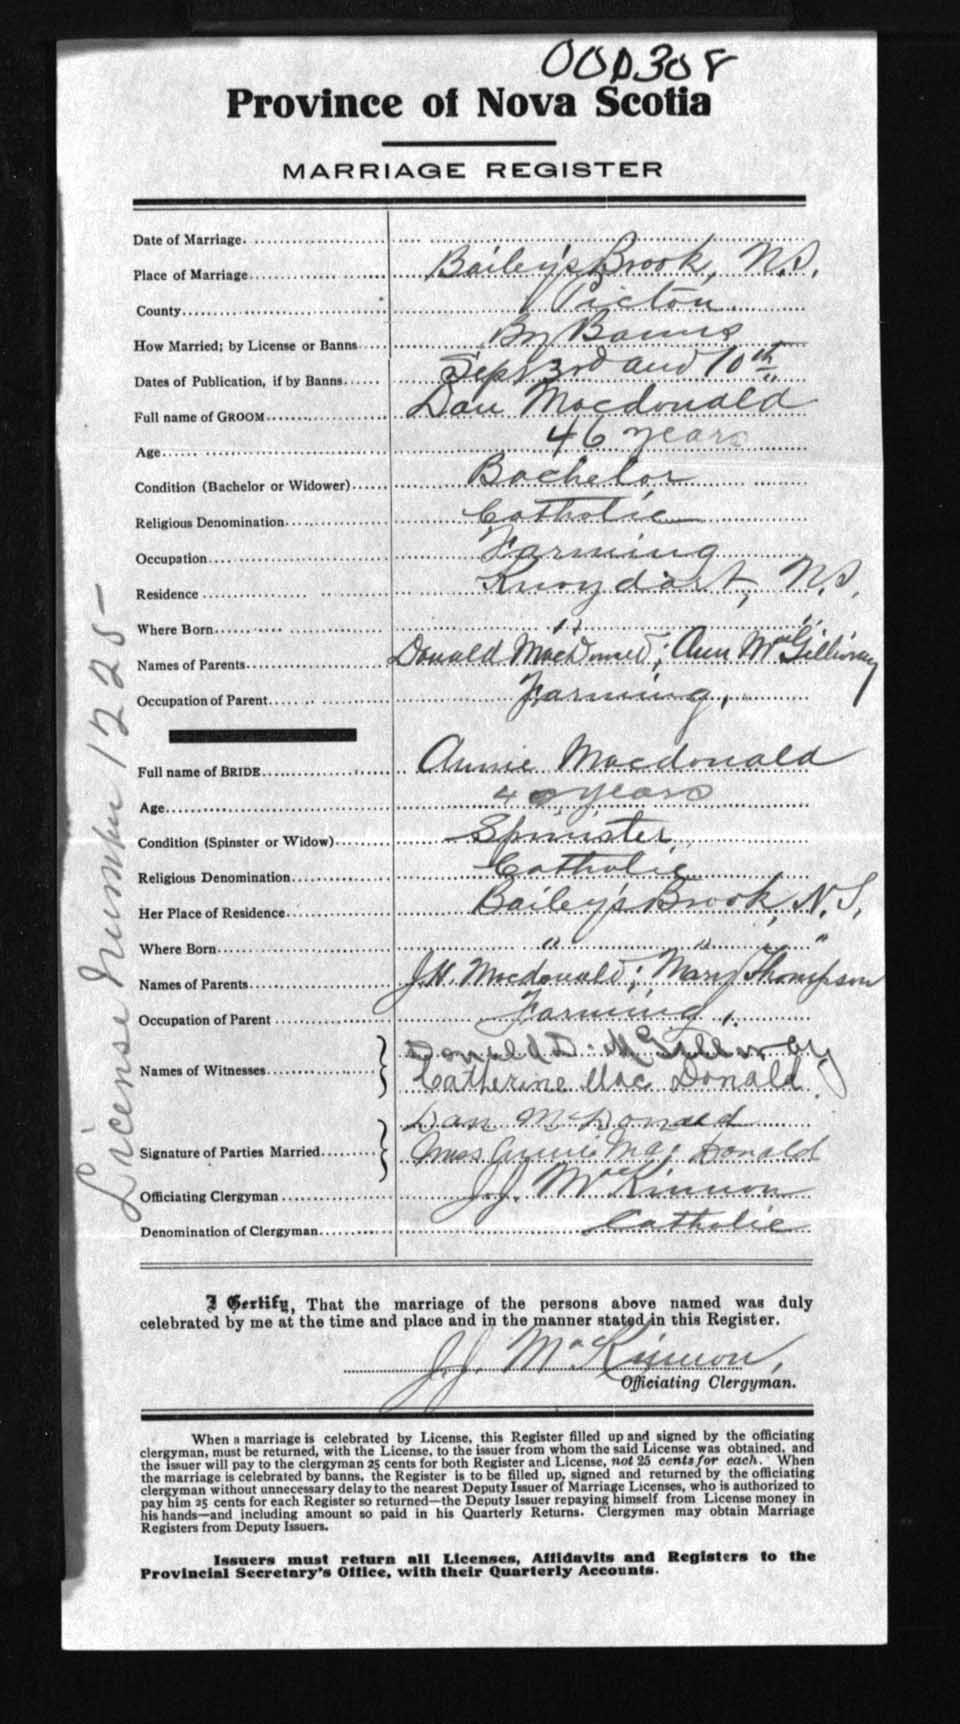 000308
Province of Nova Scotia
MARRIAGE REGISTER
Date of Marriage
Place of Marriage Bailey's Brook, N.S.
County Pictou
How Married; by License or Banns By Banns
Dates of Publication, if by Banns Sept 3rd and 10th
Full name of GROOM Dan Macdonald
Age 46 years
Condition (Bachelor or Widower) Bachelor
Religious Denomination Catholic
Occupation Farming
Residence Knoydart, N.S.
Where Born " "
Names of Parents Donald MacDonald; Ann McGillivray
Occupation of Parent Farming,
Full name of BRIDE Annie Macdonald
Age 40 years
Condition (Spinster or Widow) Spinster
Religious Denomination Catholic
Her Place of Residence Bailey's Brook, N.S.
Where Born " " "
Names of Parents J.H. Macdonald; Mary Thompson
Occupation of Parent Farming,
Names of Witnesses Donald D. McGillivray
Catherine Mac Donald
Signature of Parties Married Dan McDonald
Miss Annie Mac Donald
Officiating Clergyman J.J. McKinnon
Denomination of Clergyman Catholic
I Certify, That the marriage of the persons above named was duly
celebrated by me at the time and place and in the manner stated in this Register.
J.J. McKinnon,
Officiating Clergyman.
When a marriage is celebrated by License, this Register filled up and signed by the officiating
clergyman, must be returned, with the License, to the issuer from whom the said License was obtained, and
the issuer will pay to the clergyman 25 cents for both Register and License, not 25 cents for each. When
the marriage is celebrated by banns, the Register is to be filled up, signed and returned by the officiating
clergyman without unnecessary delay to the nearest Deputy Issuer of Marriage Licenses, who is authorized to
pay him 25 cents for each Register so returned—the Deputy Issuer repaying himself from License money in
his hands—and including amount so paid in his Quarterly Returns. Clergymen may obtain Marriage
Registers from Deputy Issuers.
Issuers must return all Licenses, Affidavits and Registers to the
Provincial Secretary's Office, with their Quarterly Accounts.
License Number 1228-